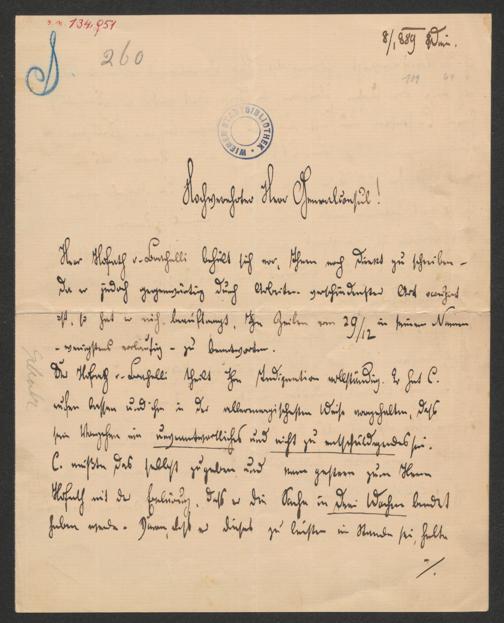 I.N. 134.951
260
8/I 889 Wien.
WIENER STADTBIBLIOTHEK
Hochverehrter Herr Generalconsul!
Herr Hofrath v. behält sich vor, Ihnen noch direkt zu schreiben –
da er jedoch gegenwärtig durch Arbeiten verschiedenster Art
ist, so hat er mich beauftragt, Ihre Zeilen vom 29/12 in seinem Namen
– wenigstens vorläufig – zu beantworten.
Der Hofrath v. theilt Ihre Indignation vollständig. Er hat C.
rufen lassen und ihm in der allerenergischesten Weise vorgehalten, daß
sein Vorgehen ein unverantwortliches und nicht zu entschuldigendes sei.
C. mußte das selbst zugeben und kam gestern zum Herrn
Hofrath mit der Erklärung, daß er die Sache in drei Wochen beendet
haben werde. Daran, daß er dieses zu leisten im Stande sei, halte
./.